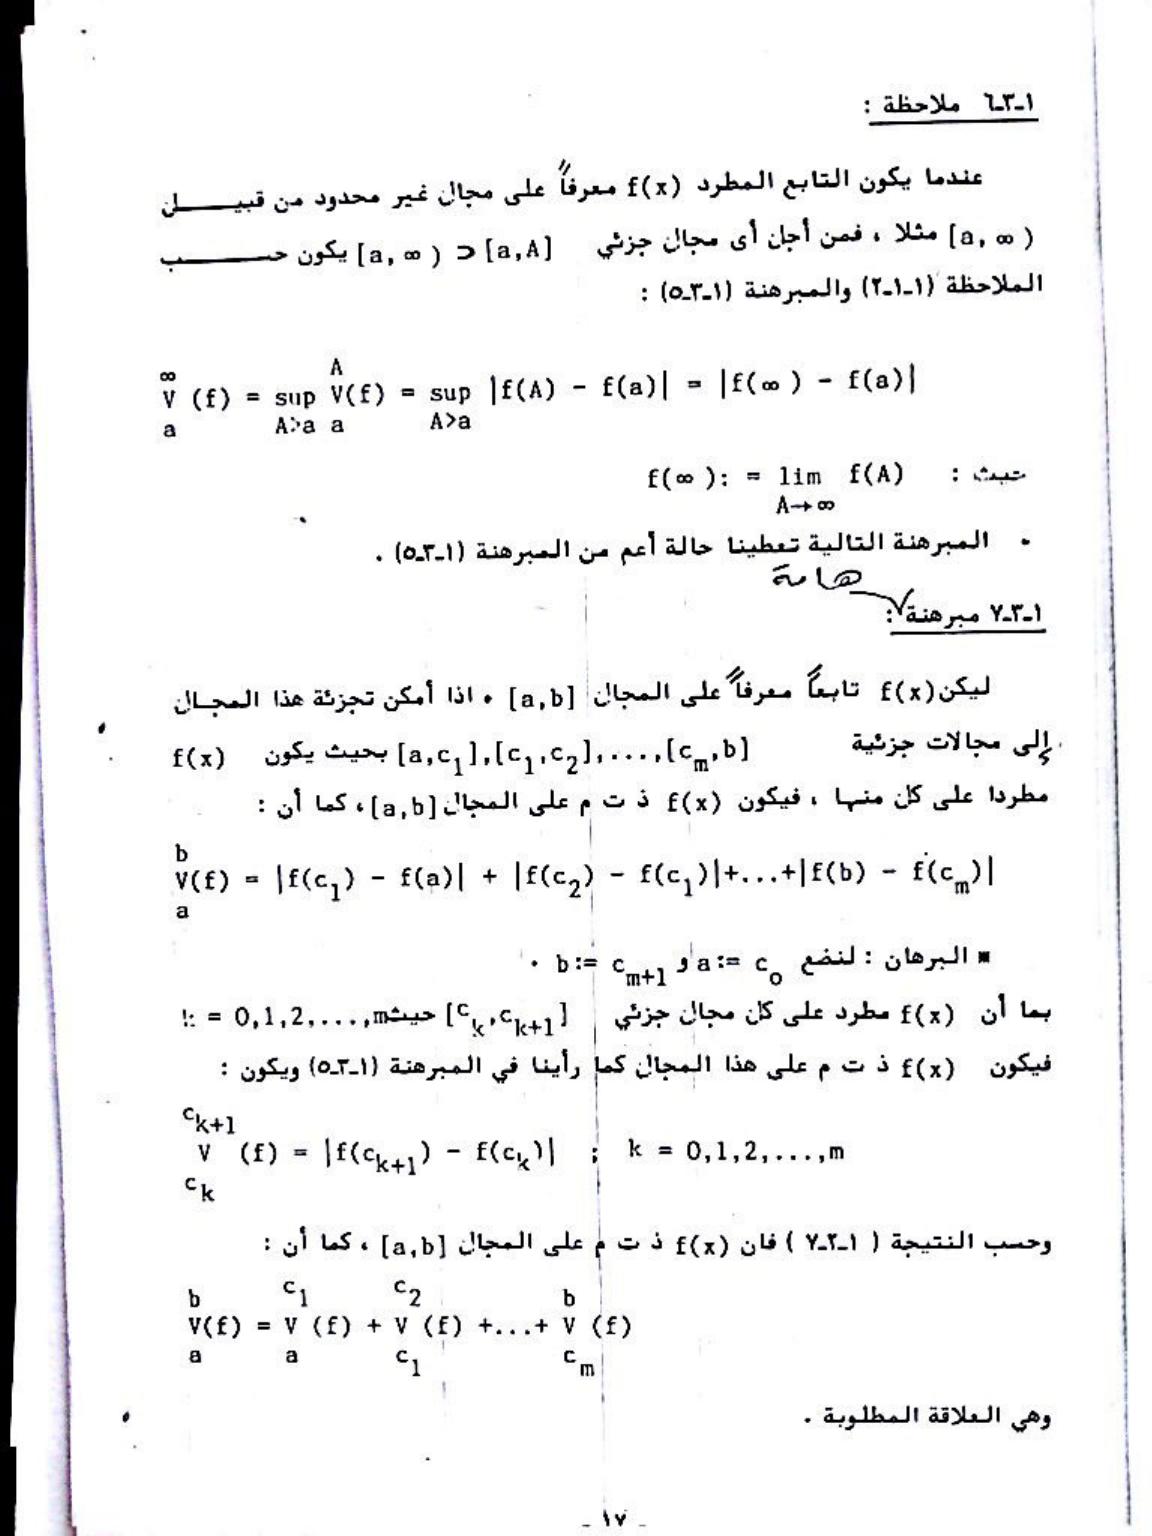 ١-٣-٦ ملاحظة :
عندما يكون التابع المطرد f(x) معرفاً على مجال غير محدود من قبيل
[a, ∞ ) مثلا ، فمن أجل أى مجال جزئي [a,A] ⊂ [a, ∞ ) يكون حسب
الملاحظة (١-١-٢) والمبرهنة (١-٣-٥) :
∞ A
V (f) = sup V(f) = sup |f(A) - f(a)| = |f(∞ ) - f(a)|
a A>a a A>a
حيث : f(∞ ): = lim f(A)
A→∞
• المبرهنة التالية تعطينا حالة أعم من المبرهنة (١-٣-٥) .
هامة
١-٣-٧ مبرهنة :
ليكن f(x) تابعاً معرفاً على المجال [a,b] • اذا أمكن تجزئة هذا المجال
إلى مجالات جزئية [a,c₁],[c₁,c₂],...,[c_m,b] بحيث يكون f(x)
مطردا على كل منها ، فيكون f(x) ذ ت م على المجال [a,b]، كما أن :
b
V(f) = |f(c₁) - f(a)| + |f(c₂) - f(c₁)|+...+|f(b) - f(c_m)|
a
* البرهان : لنضع a := c₀ و b := c_{m+1} •
بما أن f(x) مطرد على كل مجال جزئي [c_k,c_{k+1}] حيث = 0,1,2,...,m
فيكون f(x) ذ ت م على هذا المجال كما رأينا في المبرهنة (١-٣-٥) ويكون :
c_{k+1}
V (f) = |f(c_{k+1}) - f(c_k)| ; k = 0,1,2,...,m
c_k
وحسب النتيجة ( ١-٢-٧ ) فان f(x) ذ ت م على المجال [a,b] ، كما أن :
b c₁ c₂ b
V(f) = V (f) + V (f) +...+ V (f)
a a c₁ c_m
وهي العلاقة المطلوبة .
- ١٧ -